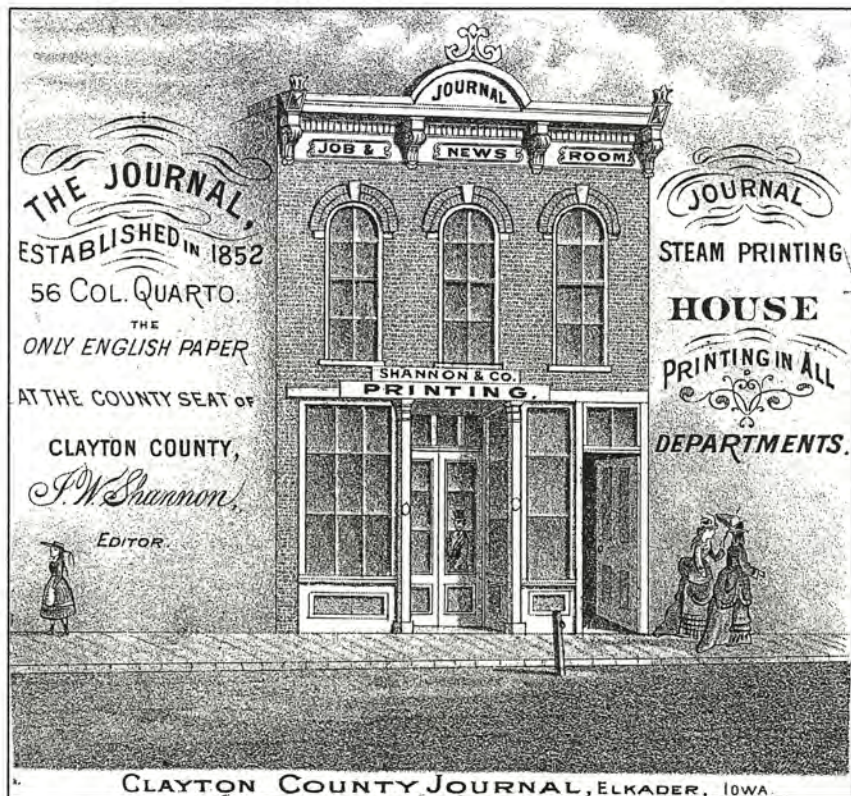 JOURNAL
JOB & NEWS ROOM
THE JOURNAL,
ESTABLISHED IN 1852
56 COL. QUARTO.
THE
ONLY ENGLISH PAPER
AT THE COUNTY SEAT OF
CLAYTON COUNTY,
J. W. Shannon,
EDITOR.
SHANNON & CO.
PRINTING.
JOURNAL
STEAM PRINTING
HOUSE
PRINTING IN ALL
DEPARTMENTS.
CLAYTON COUNTY JOURNAL, ELKADER, IOWA.